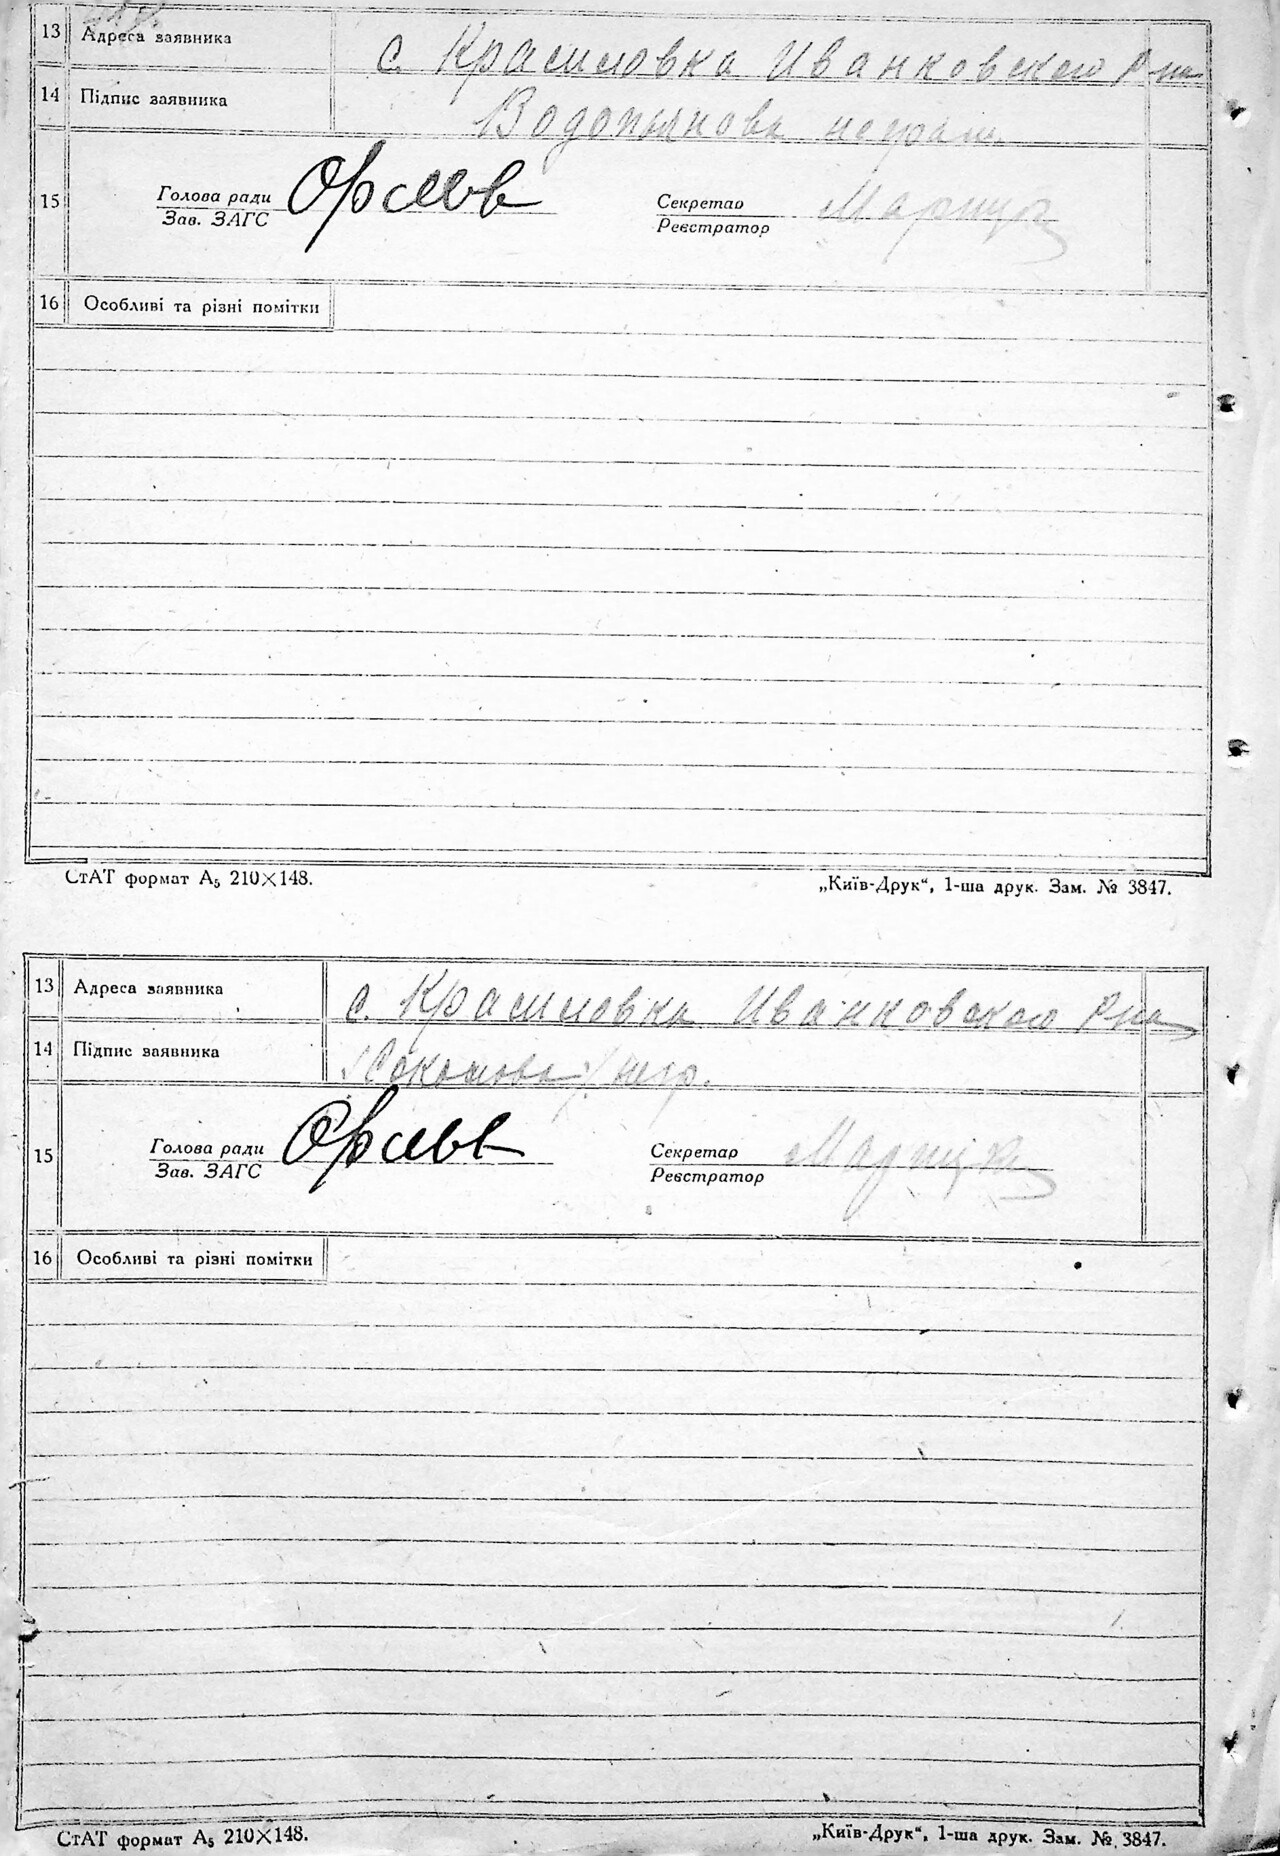 13 Адреса заявника с. Красиловка Иванковского Р-на
14 Підпис заявника Водопьянова неграм.
15 Голова ради Секретар
Зав. ЗАГС Реєстратор
16 Особливі та різні помітки
СтАТ формат А₅ 210×148. „Київ-Друк“, 1-ша друк. Зам. № 3847.
13 Адреса заявника с. Красиловка Иванковского Р-на
14 Підпис заявника /Соколова/ негр.
15 Голова ради Секретар
Зав. ЗАГС Реєстратор
16 Особливі та різні помітки
СтАТ формат А₅ 210×148. „Київ-Друк“, 1-ша друк. Зам. № 3847.